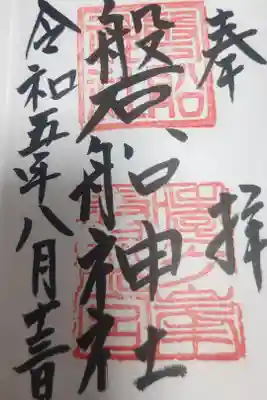 奉拝
磐船神社
令和五年八月十三日